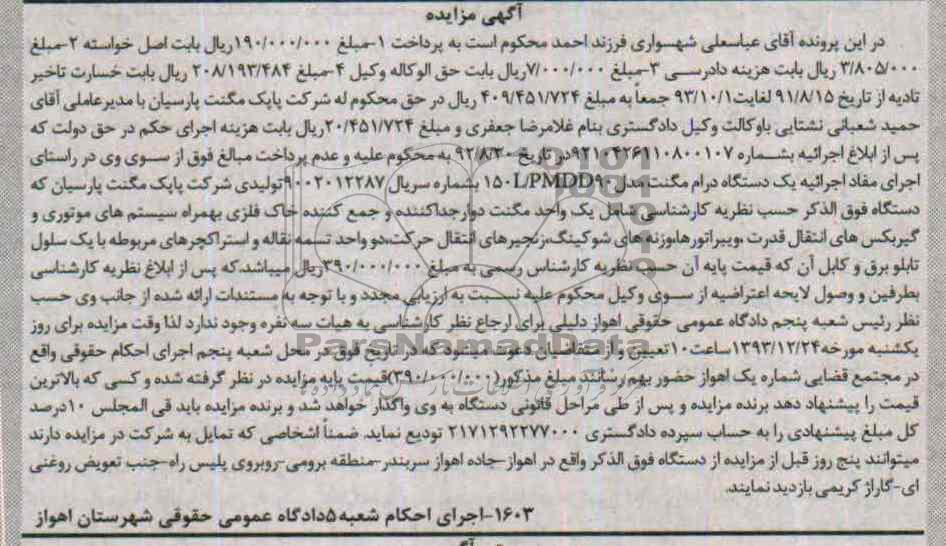 آگهی مزایده
در این پرونده آقای عباسعلی شهسواری فرزند احمد محکوم است به پرداخت ۱-مبلغ ۱۹۰/۰۰۰/۰۰۰ریال بابت اصل خواسته ۲-مبلغ
۳/۸۰۵/۰۰۰ ریال بابت هزینه دادرسی ۳-مبلغ ۷/۰۰۰/۰۰۰ریال بابت حق الوکاله وکیل ۴-مبلغ ۲۰۸/۱۹۳/۴۸۴ ریال بابت خسارت تاخیر
تادیه از تاریخ ۹۱/۸/۱۵ لغایت۹۳/۱۰/۱ جمعاً به مبلغ ۴۰۹/۴۵۱/۷۲۴ ریال در حق محکوم له شرکت پاپک مگنت پارسیان با مدیرعاملی آقای
حمید شعبانی نشتایی باوکالت وکیل دادگستری بنام غلامرضا جعفری و مبلغ ۲۰/۴۵۱/۷۲۴ریال بابت هزینه اجرای حکم در حق دولت که
پس از ابلاغ اجرائیه بشماره در تاریخ ۹۲/۸/۲۰ به محکوم علیه و عدم پرداخت مبالغ فوق از سوی وی در راستای
اجرای مفاد اجرائیه یک دستگاه درام مگنت مدل ۱۵۰L/PMDD۹۰ بشماره سریال ۹۰۰۲۰۱۲۲۸۷تولیدی شرکت پاپک مگنت پارسیان که
دستگاه فوق الذکر حسب نظریه کارشناسی شامل یک واحد مگنت دوارجداکننده و جمع کننده خاک فلزی بهمراه سیستم های موتوری و
گیربکس های انتقال قدرت ،ویبراتورها،وزنه های شوکینگ،زنجیرهای انتقال حرکت،دو واحد تسمه نقاله و استراکچرهای مربوطه با یک سلول
تابلو برق و کابل آن که قیمت پایه آن حسب نظریه کارشناس رسمی به مبلغ ۳۹۰/۰۰۰/۰۰۰ریال میباشد.که پس از ابلاغ نظریه کارشناسی
بطرفین و وصول لایحه اعتراضیه از سوی وکیل محکوم علیه نسبت به ارزیابی مجدد و با توجه به مستندات ارائه شده از جانب وی حسب
نظر رئیس شعبه پنجم دادگاه عمومی حقوقی اهواز دلیلی برای ارجاع نظر کارشناسی به هیات سه نفره وجود ندارد لذا وقت مزایده برای روز
یکشنبه مورخه۱۳۹۳/۱۲/۲۴ساعت۱۰تعیین و از متقاضیان دعوت میشود که در تاریخ فوق در محل شعبه پنجم اجرای احکام حقوقی واقع
در مجتمع قضایی شماره یک اهواز حضور بهم رسانند مبلغ مذکور(۳۹۰/۰۰۰/۰۰۰)قیمت پایه مزایده در نظر گرفته شده و کسی که بالاترین
قیمت را پیشنهاد دهد برنده مزایده و پس از طی مراحل قانونی دستگاه به وی واگذار خواهد شد و برنده مزایده باید فی المجلس ۱۰درصد
کل مبلغ پیشنهادی را به حساب سپرده دادگستری ۲۱۷۱۲۹۲۲۷۷۰۰۰ تودیع نماید. ضمناً اشخاصی که تمایل به شرکت در مزایده دارند
میتوانند پنج روز قبل از مزایده از دستگاه فوق الذکر واقع در اهواز-جاده اهواز سربندر-منطقه برومی-روبروی پلیس راه-جنب تعویض روغنی
ای-گاراژ کریمی بازدید نمایند.
۱۶۰۳-اجرای احکام شعبه۵دادگاه عمومی حقوقی شهرستان اهواز
ParsNamadData